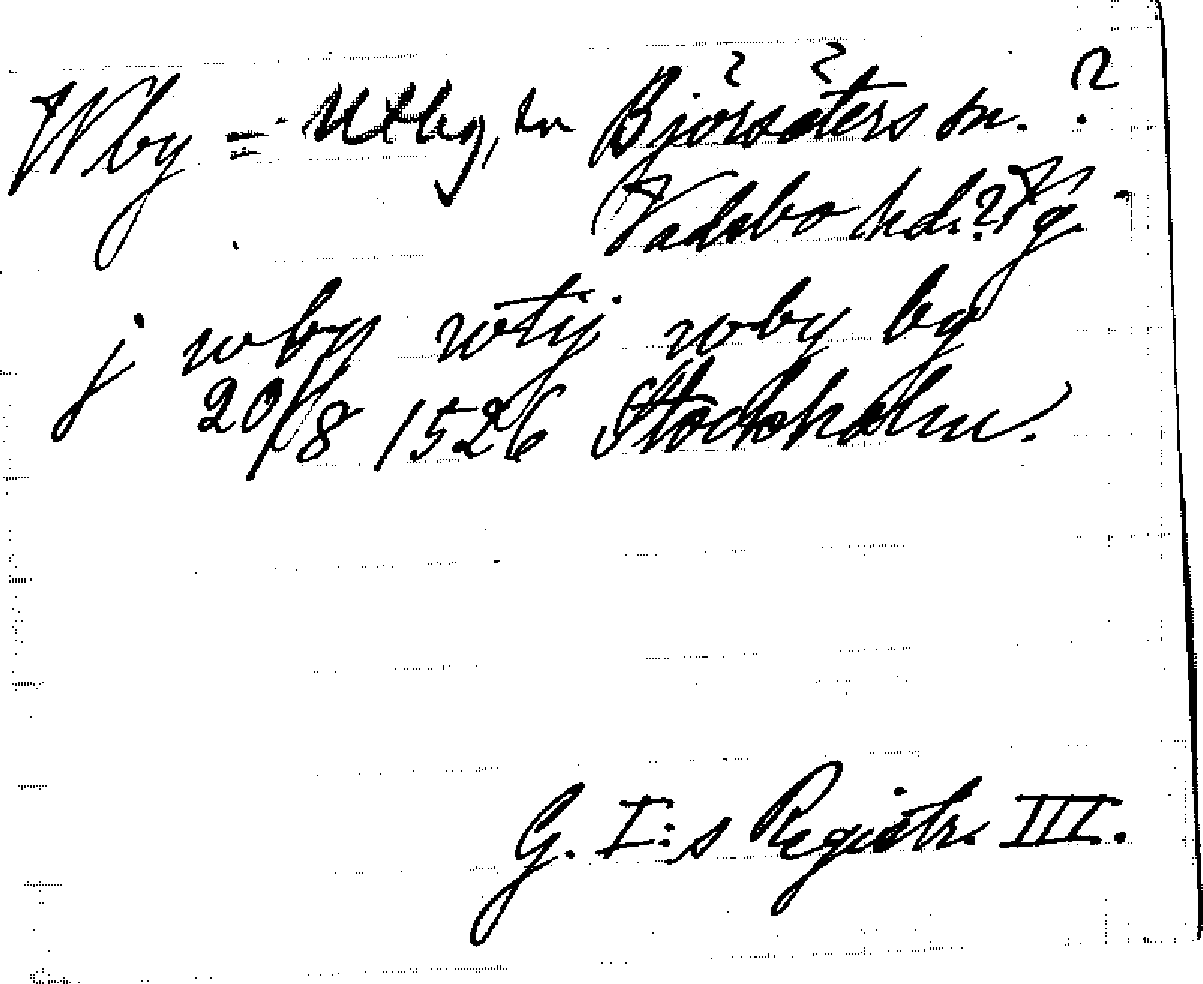 Wby = Utby, in Björsäters sn. ?
Vadsbo hd.? Vg.
j wby wtij wby by
20/8 1526 Stockholm.
G. I:s Registr. III.